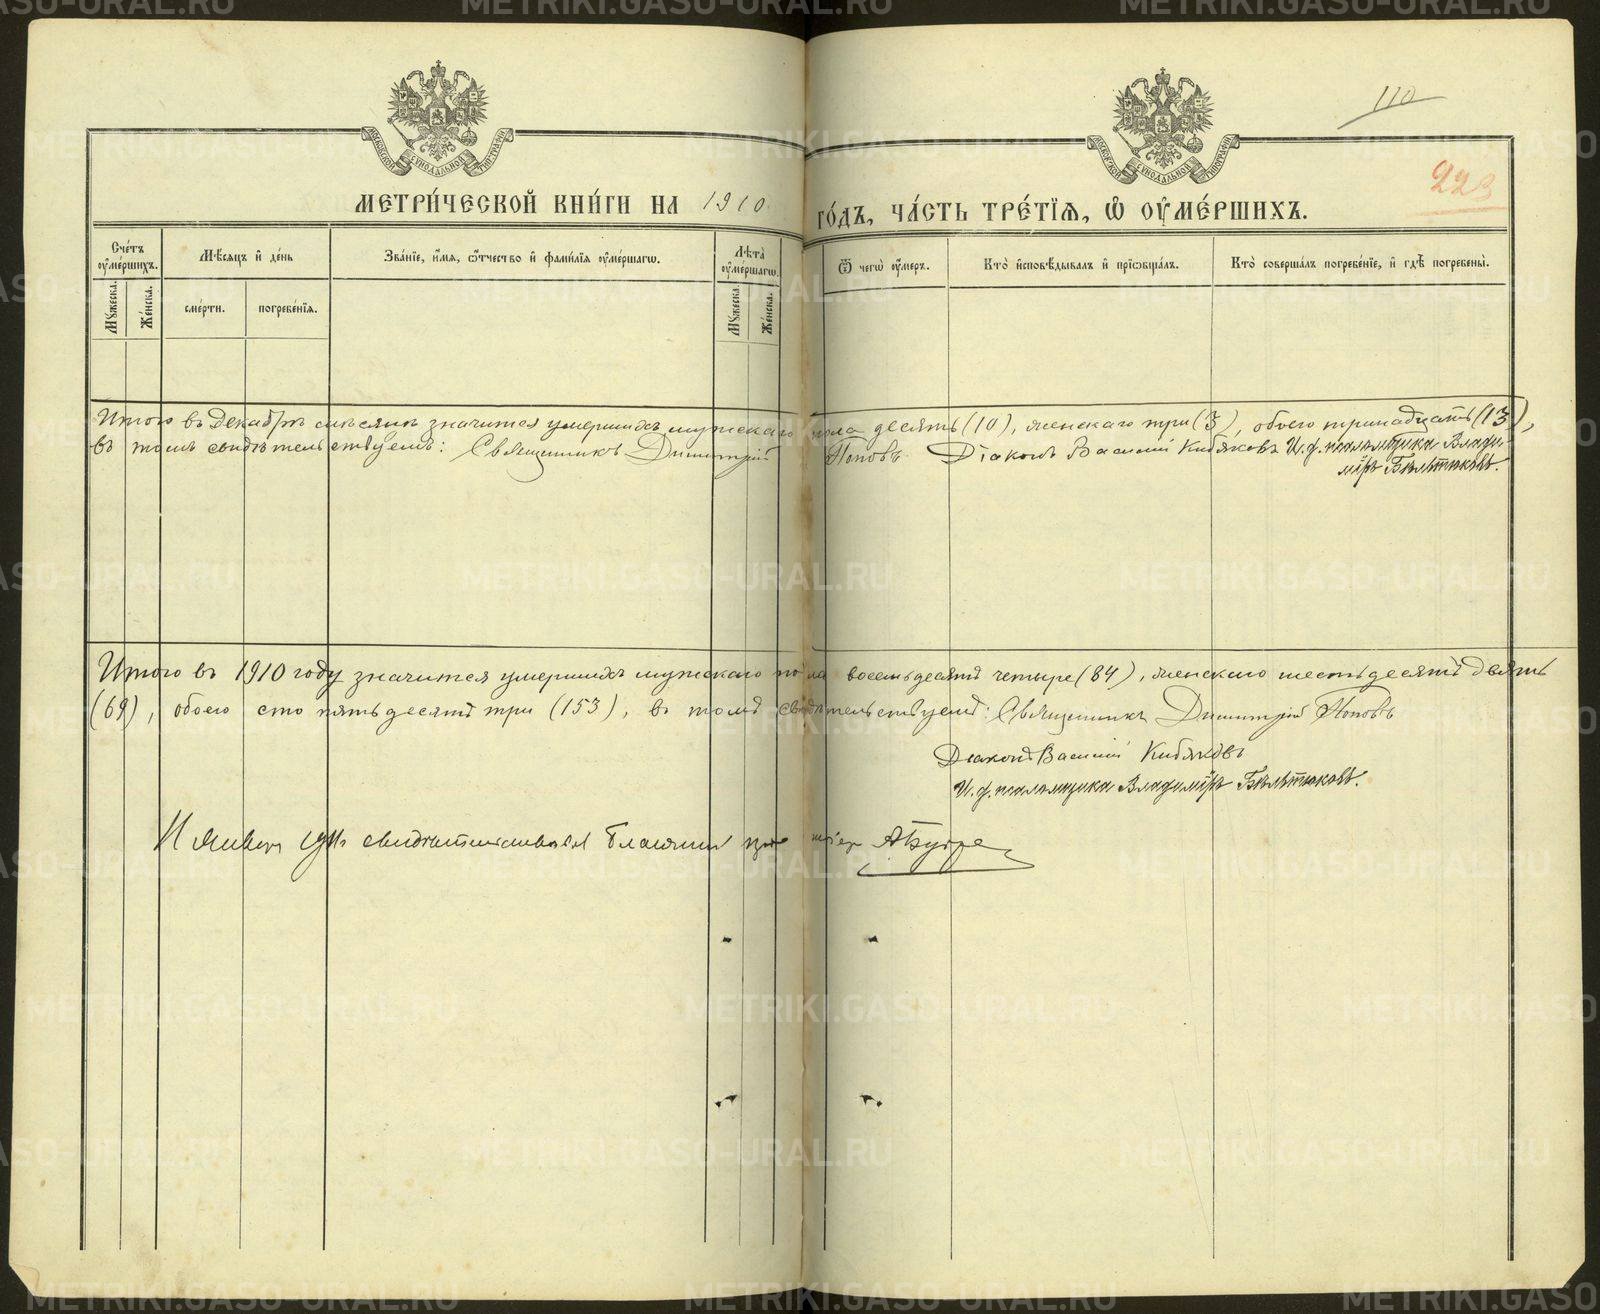 110
223
МОСКОВСКОЙ СѴНОДАЛЬНОЙ ТИПОГРАФІИ
МОСКОВСКОЙ СѴНОДАЛЬНОЙ ТИПОГРАФІИ
МЕТРИ́ЧЕСКОЙ КНИ́ГИ НА 1910 ГО́ДЪ, ЧА́СТЬ ТРЕ́ТІѦ, Ѡ҆ ОУ҆МЕ́РШИХЪ.
Сче́тъ оу҆ме́ршихъ.
Мꙋ́жеска.
Же́нска.
Мѣ́сѧцъ и҆ де́нь
сме́рти.
погребе́нїѧ.
Зва́нїе, и҆́мѧ, ѻ҆́тчество и҆ фами́лїѧ оу҆ме́ршагѡ.
Лѣ́та оу҆ме́ршагѡ.
Мꙋ́жеска.
Же́нска.
Ѿ чегѡ̀ оу҆́меръ.
Кто̀ и҆сповѣ́дывалъ и҆ прїѡбща́лъ.
Кто̀ соверша́лъ погребе́нїе, и҆ гдѣ̀ погребены̀.
Итого въ Декабрѣ мѣсяцѣ значится умершихъ мужскаго пола десять (10), женскаго три (3), обоего тринадцать (13),
въ томъ свидѣтельствуемъ: Священникъ Димитрій Поповъ Діаконъ Василій Кибяковъ И. д. псаломщика Влади-
міръ Бѣлѣтюковъ.
Итого въ 1910 году значится умершихъ мужскаго пола восемьдесятъ четыре (84), женскаго шестьдесятъ девять
(69), обоего сто пятьдесятъ три (153), въ томъ свидѣтельствуемъ: Священникъ Димитрій Поповъ
Діаконъ Василій Кибяковъ
И. д. псаломщика Владиміръ Бѣлѣтюковъ.
METRIKI.GASO-URAL.RU